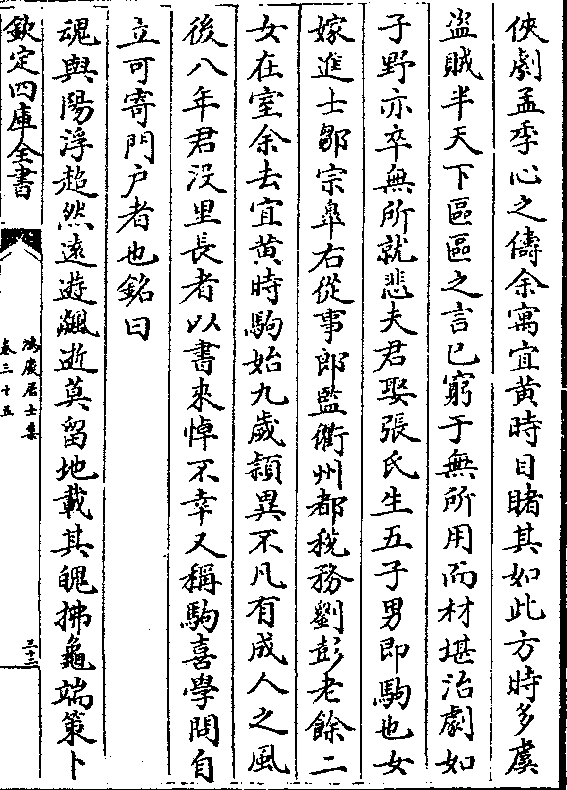 俠劇孟季心之儔余寓宜黄時目睹其如此方時多虞
盜賊半天下區區之言已窮于無所用而材堪治劇如
子野亦卒無所就悲夫君娶張氏生五子男即駒也女
嫁進士鄒宗臯右從事郎監衢州都税務劉彭老餘二
女在室余去宜黄時駒始九歳頴異不凡有成人之風
後八年君没里長者以書來悼不幸又稱駒喜學問自
立可寄門户者也銘曰
魂與陽浮超然遠遊飈逝莫留地載其魄拂龜端策卜
欽定四庫全書
鴻慶居士集
卷三十五
三十三